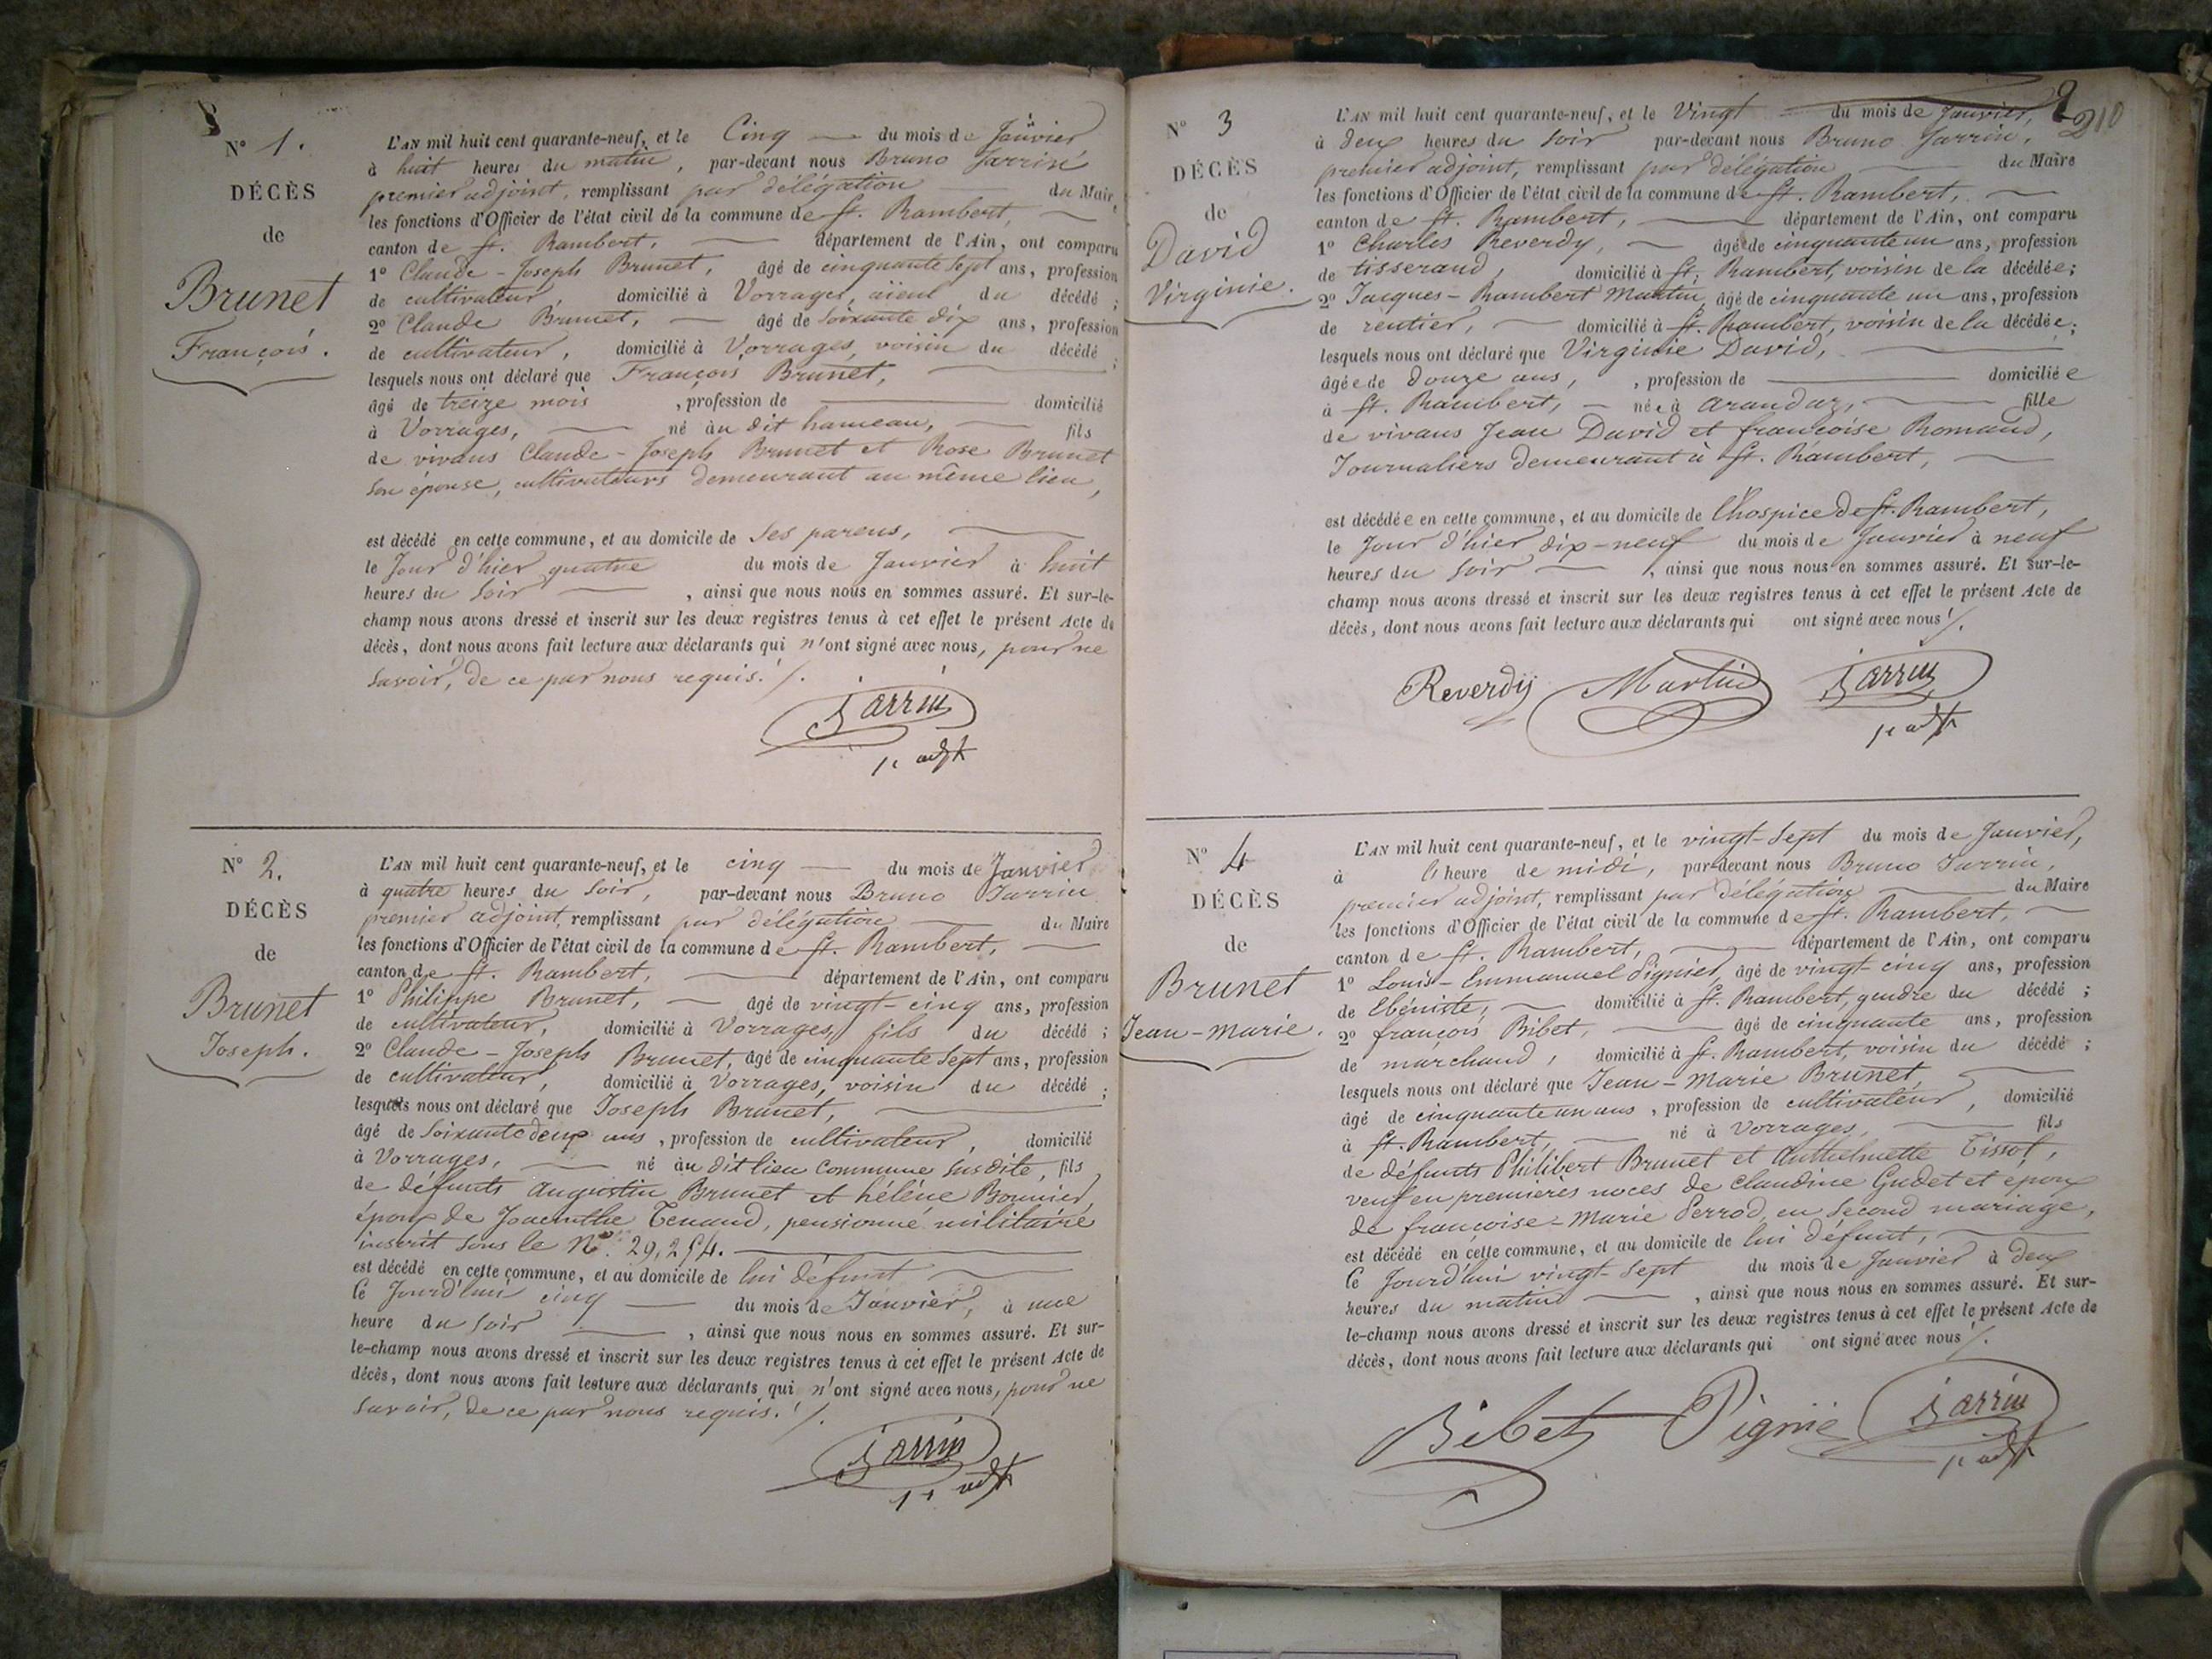 N° 1.
DÉCÈS
de
Brunet
François.
L'AN mil huit cent quarante-neuf, et le Cinq du mois de Janvier
à huit heures du matin, par-devant nous Bruno Jarrin
premier adjoint, remplissant par délégation du Maire
les fonctions d'Officier de l'état civil de la commune de St. Rambert,
canton de St. Rambert, département de l'Ain, ont comparu
1° Claude-Joseph Brunet, âgé de cinquante sept ans, profession
de cultivateur, domicilié à Vorrages, aïeul du décédé ;
2° Claude Brunet, âgé de soixante dix ans, profession
de cultivateur, domicilié à Vorrages, voisin du décédé ;
lesquels nous ont déclaré que François Brunet,
âgé de treize mois, profession de domicilié
à Vorrages, né au dit hameau, fils
de vivans Claude-Joseph Brunet et Rose Brunet
son épouse, cultivateurs demeurant au même lieu,
est décédé en cette commune, et au domicile de ses parens,
le Jour d'hier quatre du mois de Janvier à huit
heures du soir, ainsi que nous nous en sommes assuré. Et sur-le-
champ nous avons dressé et inscrit sur les deux registres tenus à cet effet le présent Acte de
décès, dont nous avons fait lecture aux déclarants qui n'ont signé avec nous, pour ne
savoir, de ce par nous requis. /.
Jarrin
1er adjt
N° 2.
DÉCÈS
de
Brunet
Joseph.
L'AN mil huit cent quarante-neuf, et le cinq du mois de Janvier
à quatre heures du soir, par-devant nous Bruno Jarrin
premier adjoint, remplissant par délégation du Maire
les fonctions d'Officier de l'état civil de la commune de St. Rambert,
canton de St. Rambert, département de l'Ain, ont comparu
1° Philippe Brunet, âgé de vingt-cinq ans, profession
de cultivateur, domicilié à Vorrages, fils du décédé ;
2° Claude-Joseph Brunet, âgé de cinquante sept ans, profession
de cultivateur, domicilié à Vorrages, voisin du décédé ;
lesquels nous ont déclaré que Joseph Brunet,
âgé de soixante deux ans, profession de cultivateur, domicilié
à Vorrages, né au dit lieu commune susdite, fils
de défunts Augustin Brunet et hélène Bonnier,
époux de Jacinthe Tenand, pensionné militaire
inscrit sous le N° 29,254.
est décédé en cette commune, et au domicile de lui défunt
le Jourd'hui cinq du mois de Janvier, à une
heure du soir, ainsi que nous nous en sommes assuré. Et sur-
le-champ nous avons dressé et inscrit sur les deux registres tenus à cet effet le présent Acte de
décès, dont nous avons fait lecture aux déclarants qui n'ont signé avec nous, pour ne
savoir, de ce par nous requis. /.
Jarrin
1er adjt
2
210
N° 3
DÉCÈS
de
David
Virginie.
L'AN mil huit cent quarante-neuf, et le Vingt du mois de Janvier,
à deux heures du soir par-devant nous Bruno Jarrin,
premier adjoint, remplissant par délégation du Maire
les fonctions d'Officier de l'état civil de la commune de St. Rambert,
canton de St. Rambert, département de l'Ain, ont comparu
1° Charles Reverdy, âgé de cinquante un ans, profession
de tisserand, domicilié à St. Rambert, voisin de la décédée ;
2° Jacques-Rambert Martin, âgé de cinquante un ans, profession
de rentier, domicilié à St. Rambert, voisin de la décédée ;
lesquels nous ont déclaré que Virginie David,
âgée de douze ans, profession de domiciliée
à St. Rambert, née à Arandaz, fille
de vivans Jean David et françoise Romand,
Journaliers demeurant à St. Rambert,
est décédée en cette commune, et au domicile de l'hospice de St. Rambert,
le Jour d'hier dix-neuf du mois de Janvier à neuf
heures du soir, ainsi que nous nous en sommes assuré. Et sur-le-
champ nous avons dressé et inscrit sur les deux registres tenus à cet effet le présent Acte de
décès, dont nous avons fait lecture aux déclarants qui ont signé avec nous /.
Reverdy Martin Jarrin
1er adjt
N° 4
DÉCÈS
de
Brunet
Jean-Marie.
L'AN mil huit cent quarante-neuf, et le vingt-sept du mois de Janvier,
à l'heure de midi, par-devant nous Bruno Jarrin,
premier adjoint, remplissant par délégation du Maire
les fonctions d'Officier de l'état civil de la commune de St. Rambert,
canton de St. Rambert, département de l'Ain, ont comparu
1° Louis-Emmanuel Pignier, âgé de vingt-cinq ans, profession
de Ebéniste, domicilié à St. Rambert, gendre du décédé ;
2° françois Bibet, âgé de cinquante ans, profession
de marchand, domicilié à St. Rambert, voisin du décédé ;
lesquels nous ont déclaré que Jean-Marie Brunet,
âgé de cinquante un ans, profession de cultivateur, domicilié
à St. Rambert, né à Vorrages, fils
de défunts Philibert Brunet et Anthelmette Tissot,
veuf en premières noces de Claudine Gudet et époux
de françoise-Marie Perrod, en second mariage,
est décédé en cette commune, et au domicile de lui défunt,
le Jourd'hui vingt-sept du mois de Janvier à deux
heures du matin, ainsi que nous nous en sommes assuré. Et sur-
le-champ nous avons dressé et inscrit sur les deux registres tenus à cet effet le présent Acte de
décès, dont nous avons fait lecture aux déclarants qui ont signé avec nous /.
Bibet Pignié Jarrin
1er adjt